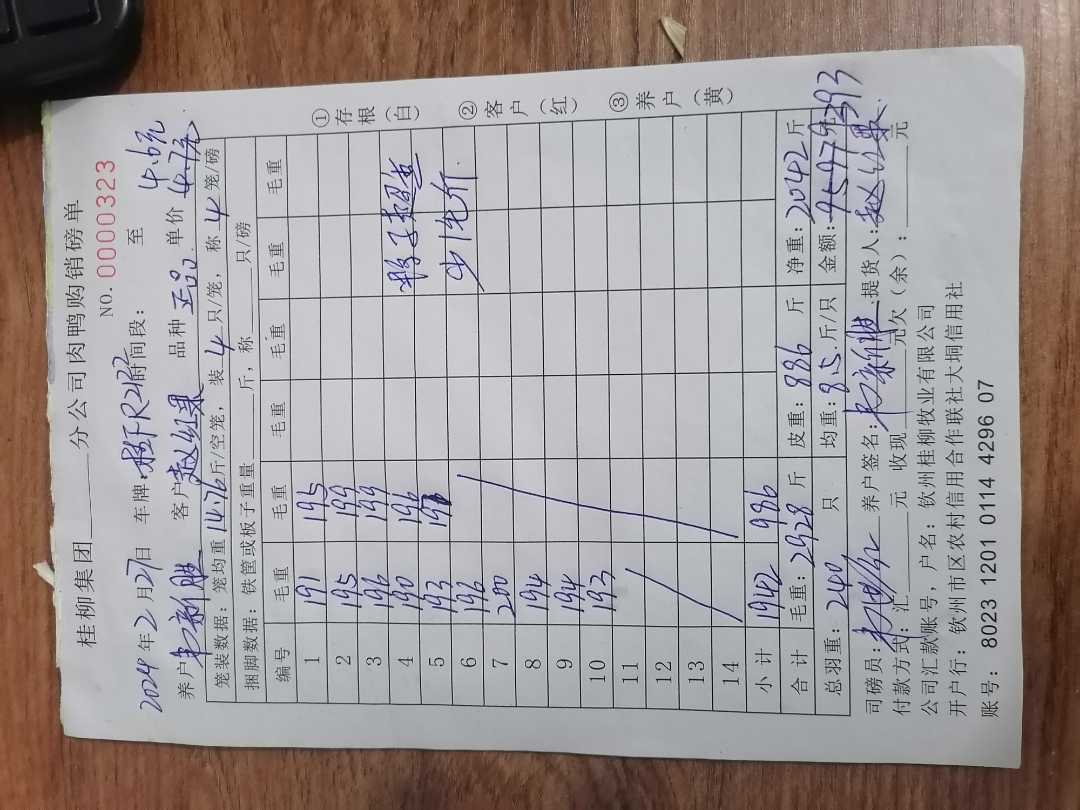 桂柳集团______分公司肉鸭购销磅单
NO. 0000323
2024年2月27日 车牌: 桂FR2182 时间段: 至 4.6元
养户 新胜 客户 赵红果 品种 正品 单价 4.7元
笼装数据: 笼均重 14.76 斤/空笼, 装 4 只/笼, 称 4 笼/磅
捆脚数据: 铁筐或板子重量______斤, 称______只/磅
编号 毛重 毛重 毛重 毛重 毛重 毛重
1 191 195
2 195 199
3 196 199
4 190 196 鸭子超出
5 193 196
6 196 少1毛/斤
7 200
8 194
9 194
10 193
11
12
13
14
小计 1942 986
合计 毛重: 2928 斤 皮重: 886 斤 净重: 2042 斤
总羽重: 240 只 均重: 8.5 斤/只 金额: 9393
司磅员: 养户签名: 新胜 提货人: 赵红果
付款方式: 汇______元 收现______元欠(余): ______元
公司汇款账号, 户名: 钦州桂柳牧业有限公司
开户行: 钦州市区农村信用合作联社大垌信用社
账号: 8023 1201 0114 4296 07
①存根(白) ②客户(红) ③养户(黄)